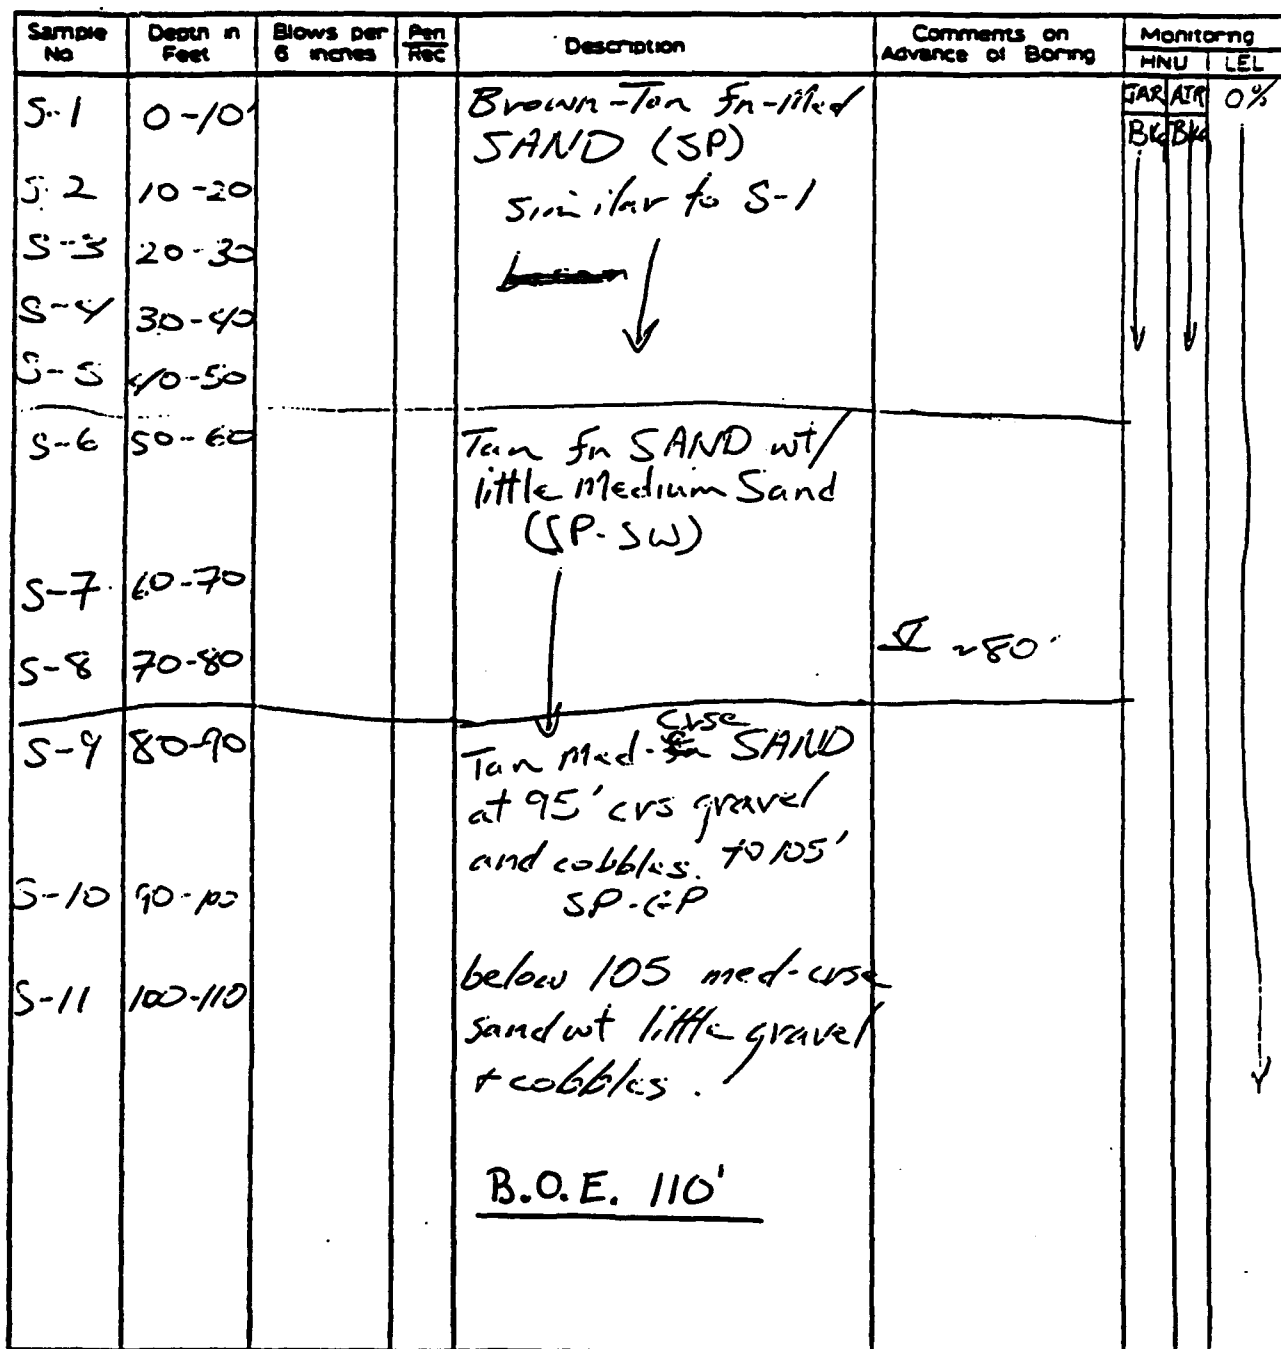 Sample No
Depth in Feet
Blows per 6 inches
Pen Rec
Description
Comments on Advance of Boring
Monitoring
HNU
LEL
S-1 0-10' Brown-Tan fn-Med JAR AIR 0%
SAND (SP) BKG BKG
S-2 10-20 similar to S-1
S-3 20-30
S-4 30-40
S-5 40-50
S-6 50-60 Tan fn SAND wt/
little Medium Sand
(SP-SW)
S-7 60-70
S-8 70-80 ~80'
S-9 80-90 Tan Med-crse SAND
at 95' crs gravel
and cobbles. to 105'
S-10 90-100 SP-GP
below 105 med-crse
S-11 100-110 sand wt little gravel
+ cobbles.
B.O.E. 110'